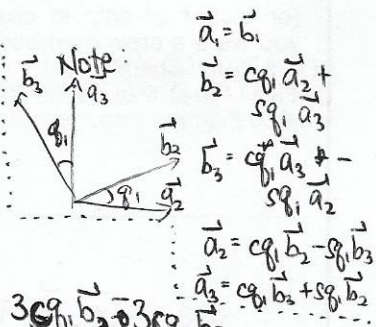 Note:
b⃗₃
a⃗₃
q₁
b⃗₂
q₁
a⃗₂
a⃗₁ = b⃗₁
b⃗₂ = cq₁ a⃗₂ +
sq₁ a⃗₃
b⃗₃ = cq₁ a⃗₃ -
sq₁ a⃗₂
a⃗₂ = cq₁ b⃗₂ - sq₁ b⃗₃
a⃗₃ = cq₁ b⃗₃ + sq₁ b⃗₂
3cq₁ b⃗₂ - 3sq